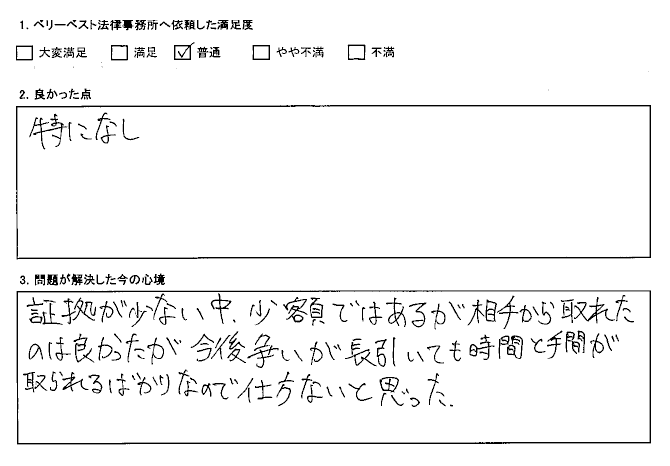 1. ベリーベスト法律事務所へ依頼した満足度
□ 大変満足 □ 満足 ☑ 普通 □ やや不満 □ 不満
2. 良かった点
特になし
3. 問題が解決した今の心境
証拠が少ない中、少額ではあるが相手から取れた
のは良かったが今後争いが長引いても時間と手間が
取られるばかりなので仕方ないと思った.